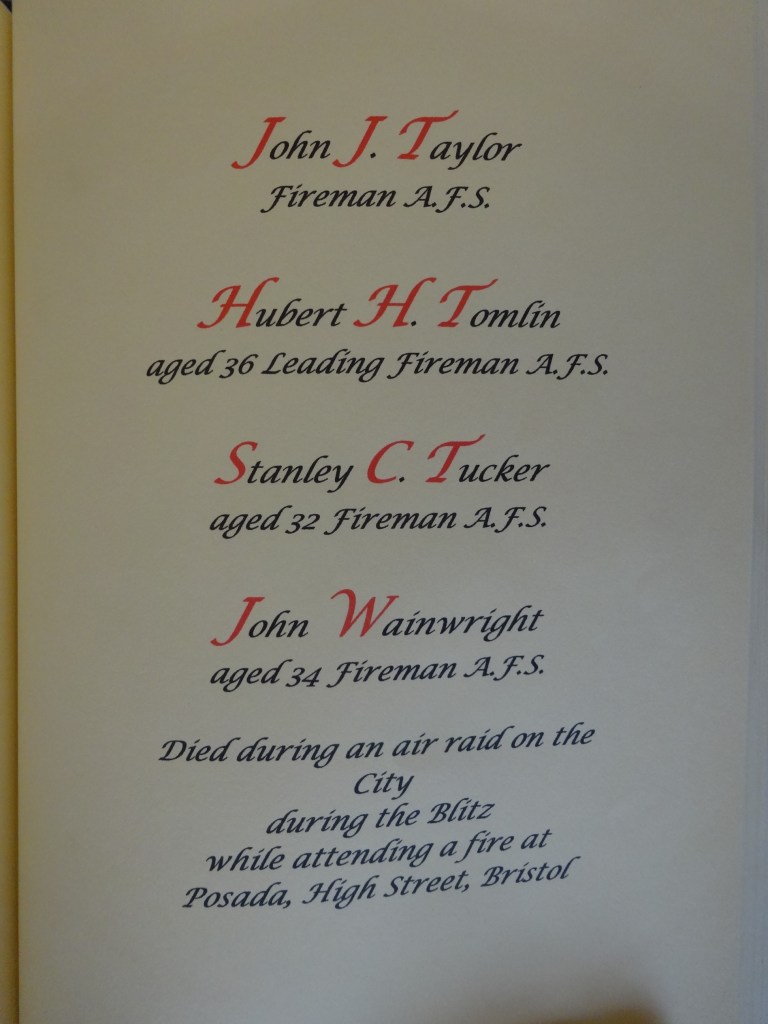 John J. Taylor
Fireman A.F.S.
Hubert H. Tomlin
aged 36 Leading Fireman A.F.S.
Stanley C. Tucker
aged 32 Fireman A.F.S.
John Wainwright
aged 34 Fireman A.F.S.
Died during an air raid on the
City
during the Blitz
while attending a fire at
Posada, High Street, Bristol